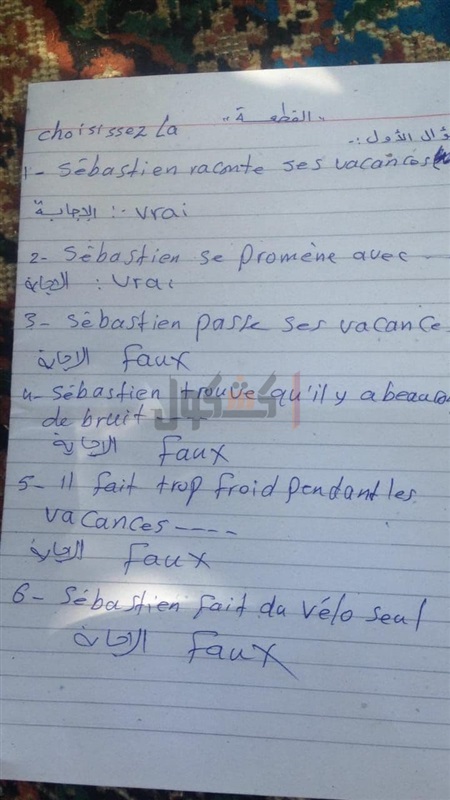 "القطعة"
choisissez la
ؤال الأول:-
1- Sébastien raconte ses vacances
الإجابة :- vrai
2- Sébastien se promène avec
الإجابة : vrai
3- Sébastien passe ses vacance
الاجابة faux
4- Sébastien trouve qu'il y a beaucou
كشكول
de bruit ----
الاجابة faux
5- il fait trop froid pendant les
vacances ----
الاجابة faux
6- Sébastien fait du vélo seul
الاجابة faux